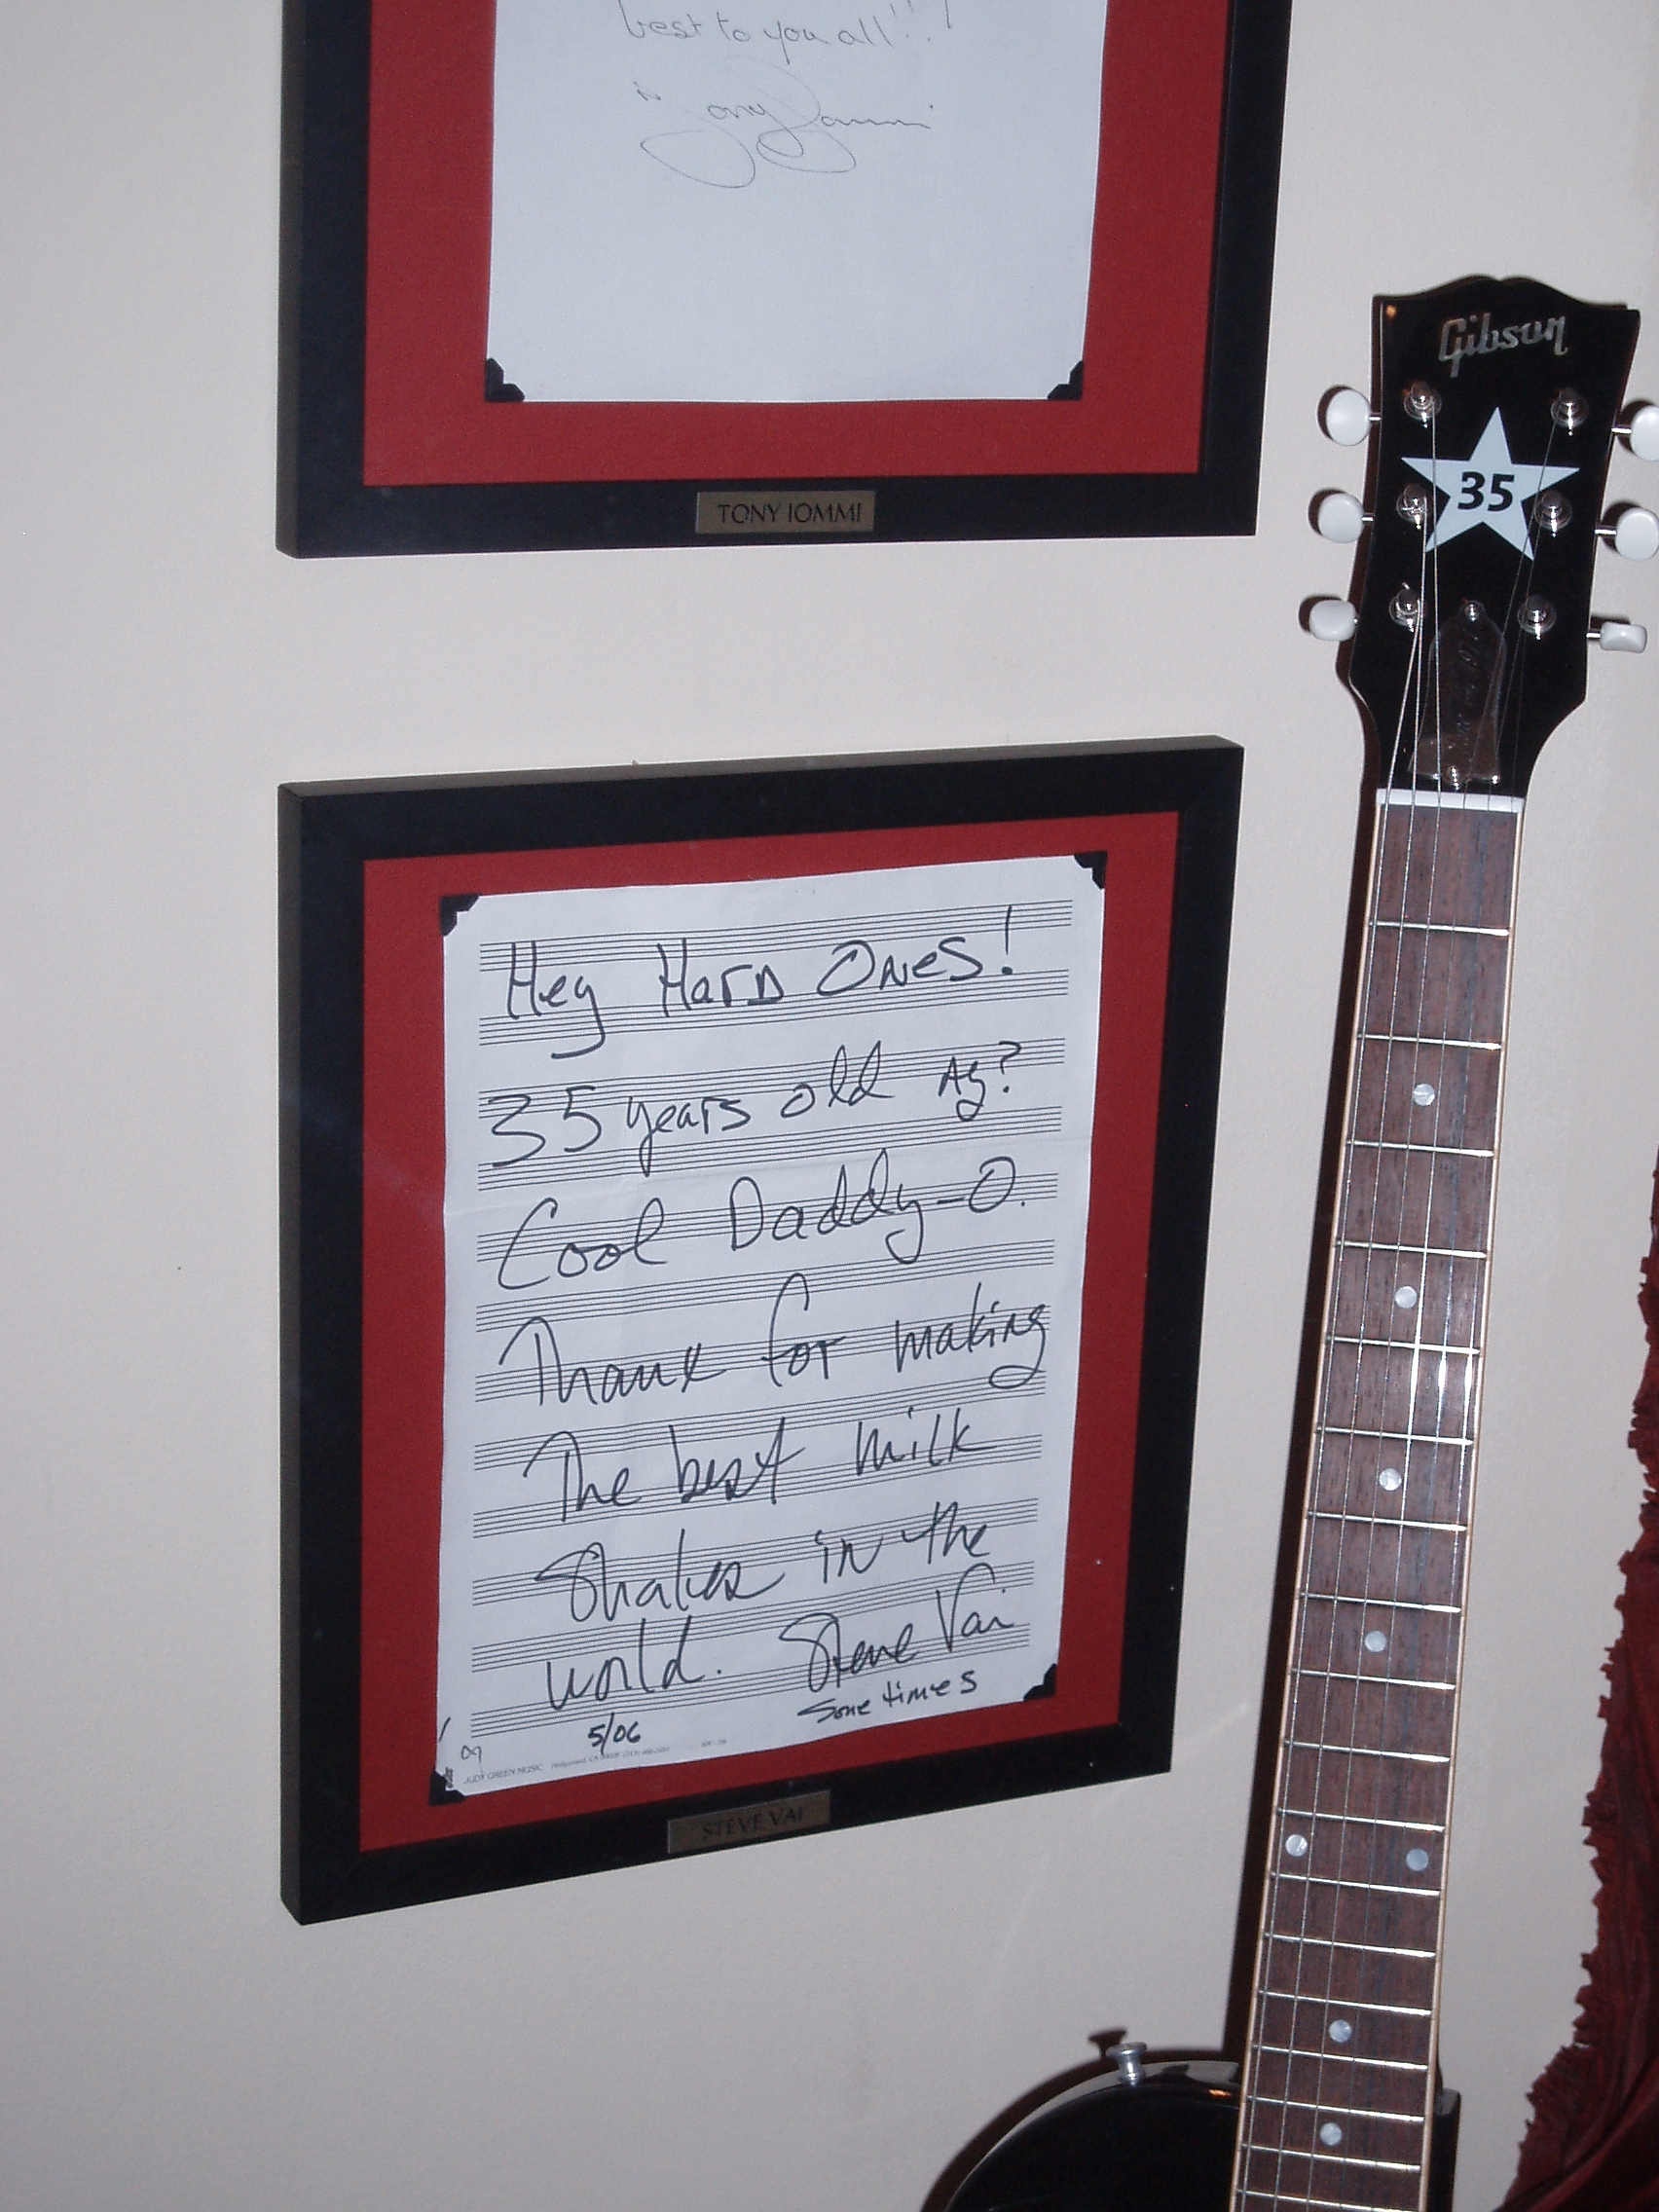 best to you all!!!
Tony Iommi
TONY IOMMI
Gibson
35
Hey Hard Ones!
35 years old Ay?
Cool Daddy-O.
Thanx for making
The best milk
Shakes in the
world. Steve Vai
Sometimes
5/06
JUDY GREEN MUSIC Hollywood, CA
STEVE VAI